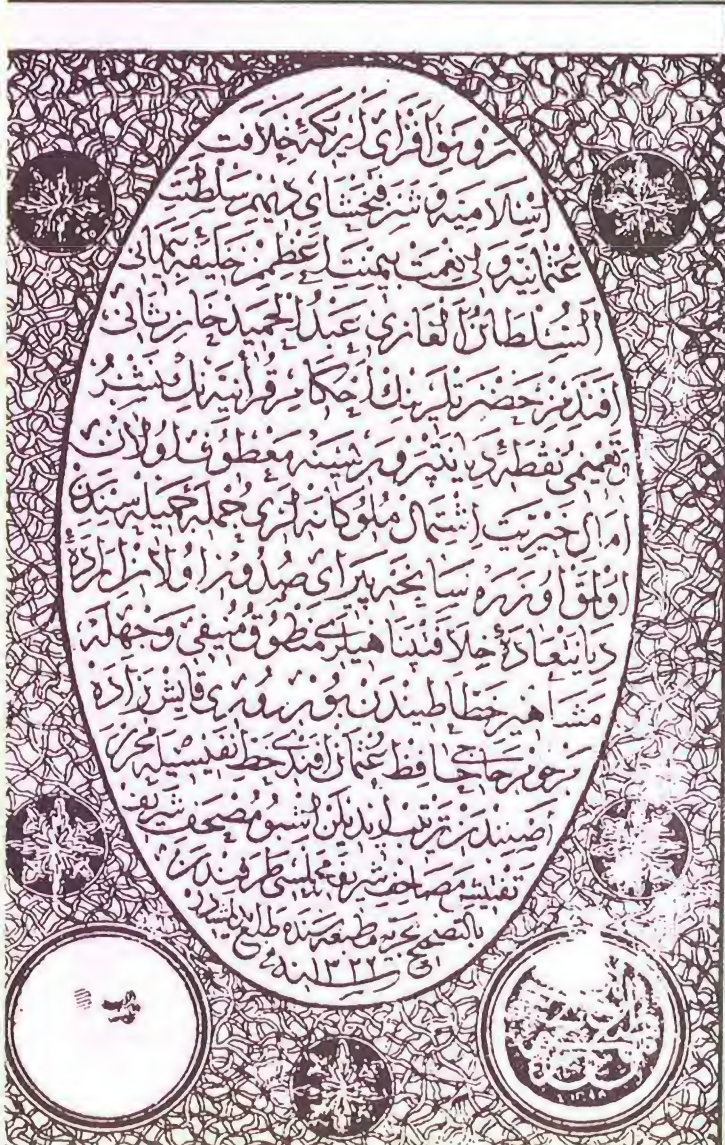 رونق افزای اریکهٔ خلافت
اسلامیه و شرفبخشای دیهیم سلطنت
عثمانیه ولی نعمت بیمنت اعظم خلیفه
السلطان الغازی عبد الحمید خان ثانی
افندمز حضرتلرینك احکام قرآنیه نك نشر
تعمیمی نقطهٔ دیانتپرورسینه معطوف اولان
امال خیریت اشتمال ملوکانه لری جمله جمیله سندن
اولمق اوزره سانحه پیرای صدور اولان اراده
دیانتعادهٔ خلافتپناهیلری منطوق منیفی وجهله
مشاهیر خطاطیندن بوردوری قایش زاده
مرحوم حاجی حافظ عثمان افندی خط نفیسیله محرر
اصلیندن ترتیب ایدیلن اشبو مصحف شریف
تفتیش مصاحف شریفه مجلسی طرفندن
بالتصحیح بحریه مطبعه سنده طبع
سنه ١٣٢٢